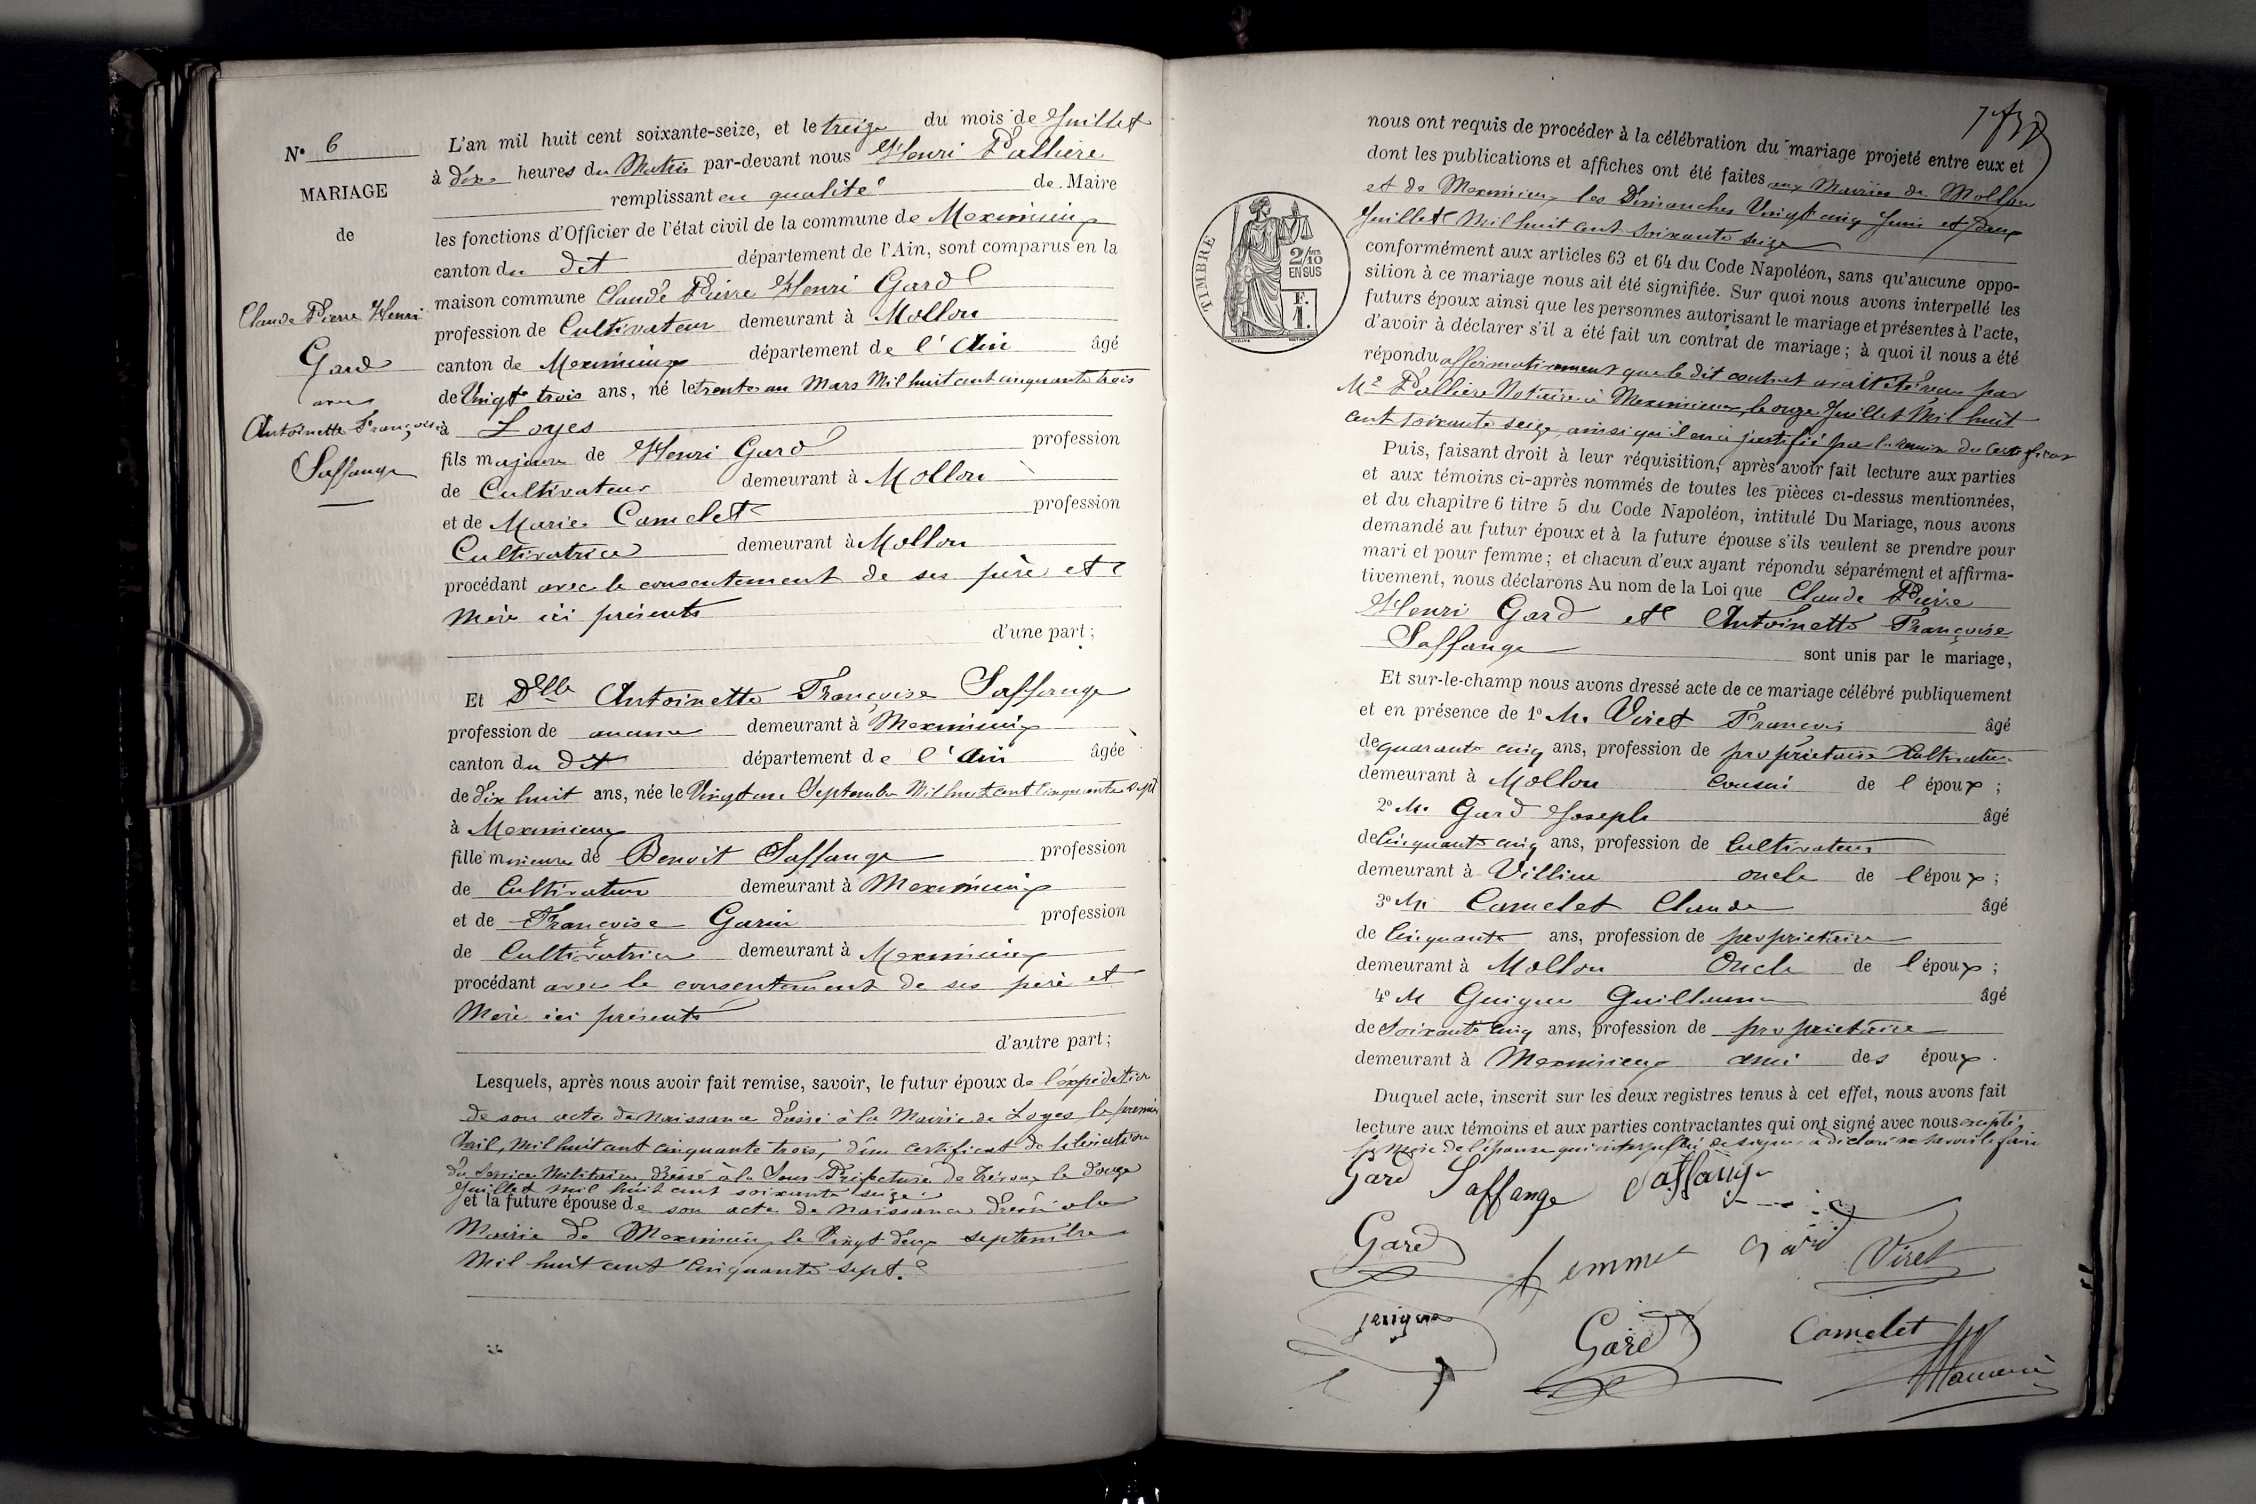 N° 6
MARIAGE
de
Claude Pierre Henri
Gard
avec
Antoinette Françoise
Saffange
L'an mil huit cent soixante-seize, et le treize du mois de Juillet
à dix heures du Matin par-devant nous Henri Pallière
remplissant en qualité de Maire
les fonctions d'Officier de l'état civil de la commune de Meximieux
canton du dit département de l'Ain, sont comparus en la
maison commune Claude Pierre Henri Gard
profession de Cultivateur demeurant à Mollon
canton de Meximieux département de l'Ain âgé
de Vingt trois ans, né le trente un Mars Mil huit cent cinquante trois
à Loyes
fils majeur de Henri Gard profession
de Cultivateur demeurant à Mollon
et de Marie Camelet profession
Cultivatrice demeurant à Mollon
procédant avec le consentement de ses père et
Mère ici présents
d'une part;
Et Delle Antoinette Françoise Saffange
profession de aucune demeurant à Meximieux
canton du dit département de l'Ain âgée
de dix huit ans, née le Vingt un Septembre Mil huit cent Cinquante sept
à Meximieux
fille mineure de Benoit Saffange profession
de Cultivateur demeurant à Meximieux
et de Françoise Garin profession
de Cultivatrice demeurant à Meximieux
procédant avec le consentement de ses père et
Mère ici présents
d'autre part;
Lesquels, après nous avoir fait remise, savoir, le futur époux de l'expédition
de son acte de Naissance dressé à la Mairie de Loyes le premier
Avril, Mil huit cent cinquante trois, d'un certificat de libération
du Service Militaire, dressé à la Sous Préfecture de Trévoux le douze
Juillet mil huit cent soixante seize
et la future épouse de son acte de Naissance dressé à la
Mairie de Meximieux le Vingt deux septembre
Mil huit cent Cinquante sept.
nous ont requis de procéder à la célébration du mariage projeté entre eux et
dont les publications et affiches ont été faites aux Mairies de Mollon
et de Meximieux les Dimanches Vingt cinq Juin et deux
Juillet Mil huit cent Soixante seize
conformément aux articles 63 et 64 du Code Napoléon, sans qu'aucune oppo-
sition à ce mariage nous ait été signifiée. Sur quoi nous avons interpellé les
futurs époux ainsi que les personnes autorisant le mariage et présentes à l'acte,
d'avoir à déclarer s'il a été fait un contrat de mariage; à quoi il nous a été
répondu affirmativement que le dit contrat avait été reçu par
Me Pallière Notaire à Meximieux le onze Juillet Mil huit
cent soixante seize, ainsi qu'il en a justifié par la remise du Certificat
Puis, faisant droit à leur réquisition, après avoir fait lecture aux parties
et aux témoins ci-après nommés de toutes les pièces ci-dessus mentionnées,
et du chapitre 6 titre 5 du Code Napoléon, intitulé Du Mariage, nous avons
demandé au futur époux et à la future épouse s'ils veulent se prendre pour
mari et pour femme; et chacun d'eux ayant répondu séparément et affirma-
tivement, nous déclarons Au nom de la Loi que Claude Pierre
Henri Gard et Antoinette Françoise
Saffange sont unis par le mariage,
Et sur-le-champ nous avons dressé acte de ce mariage célébré publiquement
et en présence de 1° M. Viret François âgé
de quarante cinq ans, profession de propriétaire Cultivateur
demeurant à Mollon cousin de l'époux;
2° M. Gard Joseph âgé
de Cinquante cinq ans, profession de Cultivateur
demeurant à Villieu oncle de l'époux;
3° M. Camelet Claude âgé
de Cinquante ans, profession de propriétaire
demeurant à Mollon Oncle de l'époux;
4° M Guigue Guillaume âgé
de Soixante cinq ans, profession de propriétaire
demeurant à Meximieux ami des époux.
Duquel acte, inscrit sur les deux registres tenus à cet effet, nous avons fait
lecture aux témoins et aux parties contractantes qui ont signé avec nous excepté
la Mère de l'épouse qui interpellée de signer a déclaré ne savoir le faire
Gard Saffange Saffange
Gard femme Gard Viret
guigue Gard Camelet
TIMBRE
2/10
EN SUS
F.
1.